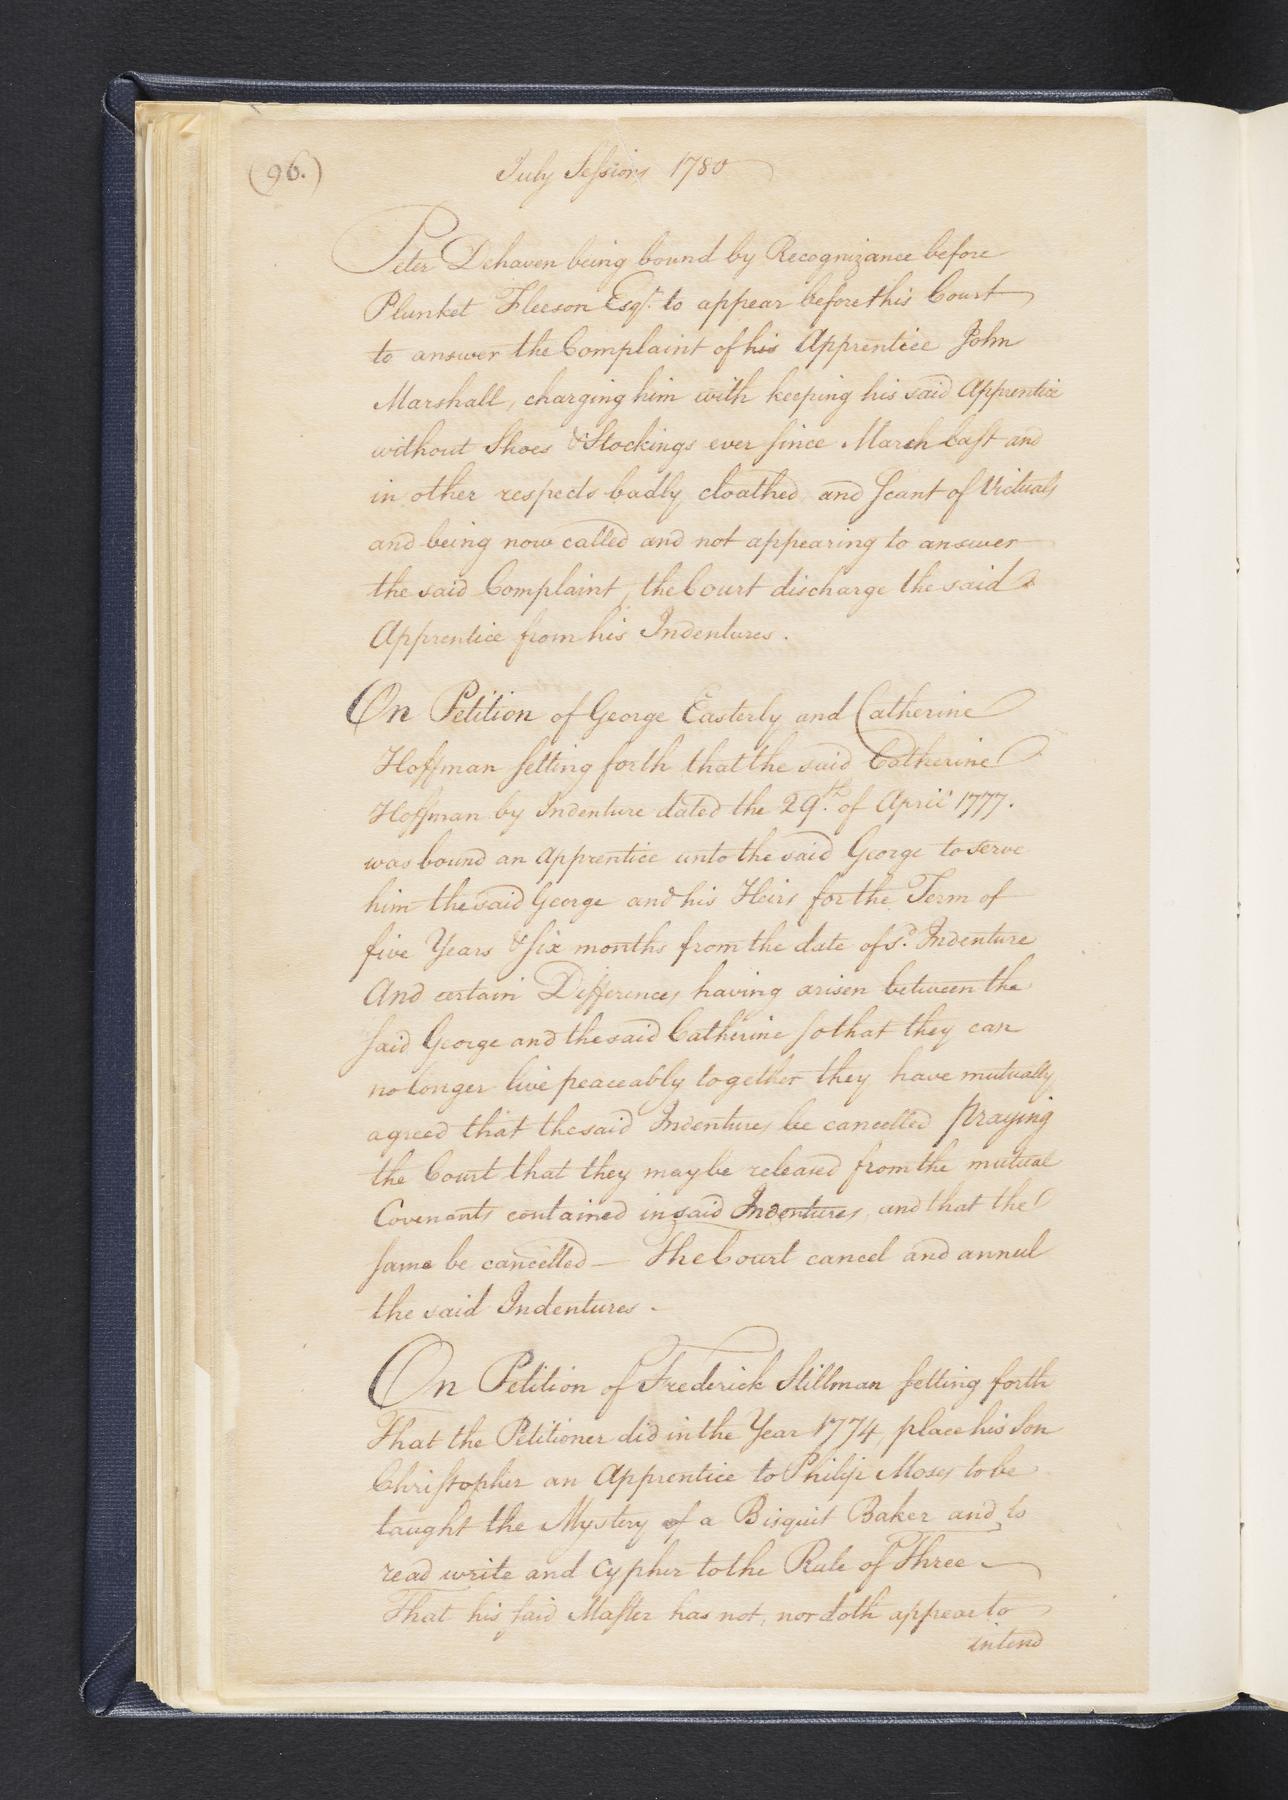 (96.)
July Sessions 1780
Peter Dehaven being bound by Recognizance before
Plunket Fleeson Esqr. to appear before this Court
to answer the Complaint of his Apprentice John
Marshall, charging him with keeping his said Apprentice
without Shoes & Stockings ever since March last and
in other respects badly cloathed and Scant of Victuals
and being now called and not appearing to answer
the said Complaint, the Court discharge the said
Apprentice from his Indentures.
On Petition of George Easterly and Catherine
Hoffman setting forth that the said Catherine
Hoffman by Indenture dated the 29.th of April 1777.
was bound an Apprentice unto the said George to serve
him the said George and his Heirs for the Term of
five Years & six months from the date of sd. Indenture
And certain Differences having arisen between the
said George and the said Catherine so that they can
no longer live peaceably together they have mutually
agreed that the said Indentures be cancelled praying
the Court that they may be released from the mutual
Covenants contained in said Indentures and that the
same be cancelled — The Court cancel and annul
the said Indentures -
On Petition of Frederick Stillman setting forth
That the Petitioner did in the Year 1774, place his Son
Christopher an Apprentice to Philip Moses to be
taught the Mystery of a Bisquit Baker and to
read write and Cypher to the Rule of Three -
That his said Master has not, nor doth appear to
intend